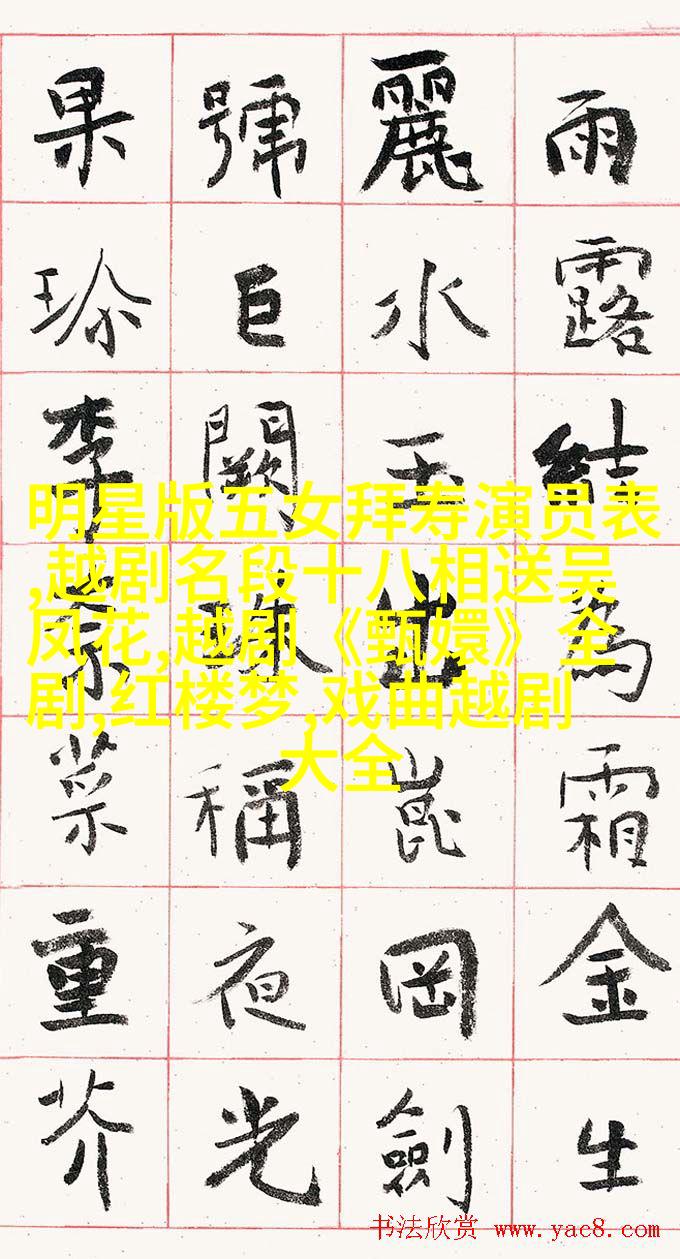 雨露結為霜金生
麗水玉出崑岡劍
號巨闕珠稱夜光
果珎李柰菜重芥
明星版五女拜寿演员表
,越剧名段十八相送吴
凤花,越剧《甄嬛》全
剧,红楼梦,戏曲越剧
大全
书法欣赏 www.yac8.com